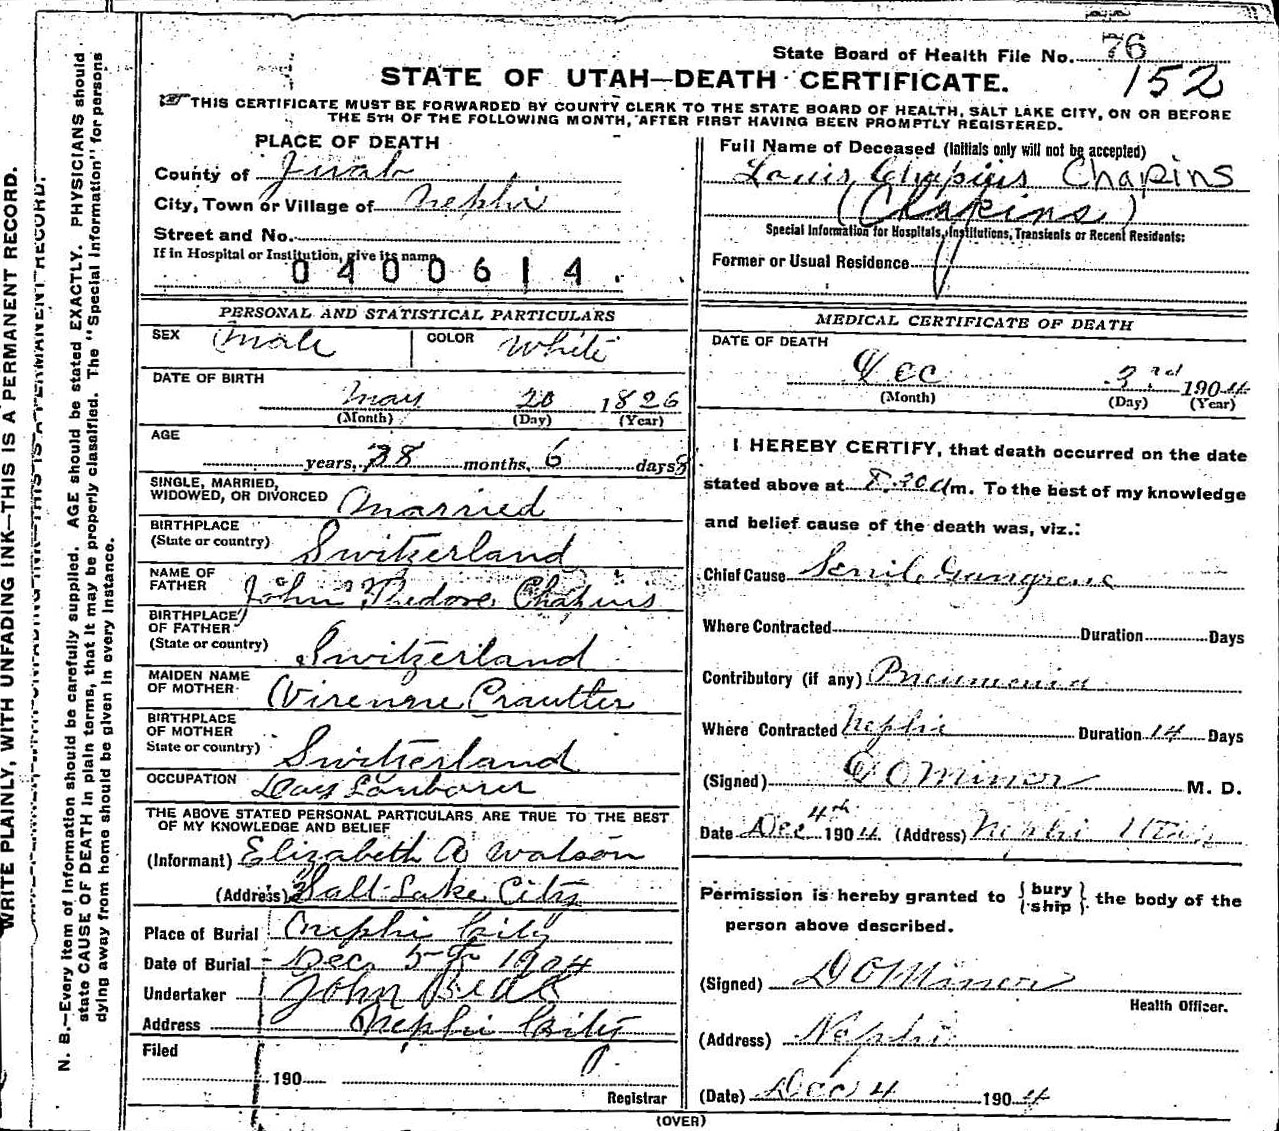 State Board of Health File No. 76
152
STATE OF UTAH—DEATH CERTIFICATE.
THIS CERTIFICATE MUST BE FORWARDED BY COUNTY CLERK TO THE STATE BOARD OF HEALTH, SALT LAKE CITY, ON OR BEFORE
THE 5TH OF THE FOLLOWING MONTH, AFTER FIRST HAVING BEEN PROMPTLY REGISTERED.
PLACE OF DEATH
County of Juab
City, Town or Village of Nephi
Street and No.
If in Hospital or Institution, give its name
0400614
Full Name of Deceased (Initials only will not be accepted)
Louis Chapuis Chapins
(Chapins)
Special Information for Hospitals, Institutions, Transients or Recent Residents:
Former or Usual Residence
PERSONAL AND STATISTICAL PARTICULARS
SEX Male COLOR White
DATE OF BIRTH
May 20 1826
(Month) (Day) (Year)
AGE
years, 78 months, 6 days
SINGLE, MARRIED,
WIDOWED, OR DIVORCED Married
BIRTHPLACE
(State or country) Switzerland
NAME OF
FATHER John Thedore Chapins
BIRTHPLACE
OF FATHER
(State or country) Switzerland
MAIDEN NAME
OF MOTHER Virenne Crautter
BIRTHPLACE
OF MOTHER
State or country) Switzerland
OCCUPATION Day Laborer
THE ABOVE STATED PERSONAL PARTICULARS ARE TRUE TO THE BEST
OF MY KNOWLEDGE AND BELIEF
(Informant) Elizabeth A Watson
(Address) Salt Lake City
Place of Burial Nephi City
Date of Burial Dec 5th 1904
Undertaker John Beal
Address Nephi City
Filed
190
Registrar
MEDICAL CERTIFICATE OF DEATH
DATE OF DEATH
Dec 3rd 1904
(Month) (Day) (Year)
I HEREBY CERTIFY, that death occurred on the date
stated above at 8.30 a m. To the best of my knowledge
and belief cause of the death was, viz.:
Chief Cause Senile Gangrene
Where Contracted Duration Days
Contributory (if any) Pneumonia
Where Contracted Nephi Duration 14 Days
(Signed) D O Miner M. D.
Date Dec 4th 1904 (Address) Nephi Utah
Permission is hereby granted to {bury
ship} the body of the
person above described.
(Signed) D O Miner
Health Officer.
(Address) Nephi
(Date) Dec 4 1904
(OVER)
WRITE PLAINLY, WITH UNFADING INK—THIS IS A PERMANENT RECORD.
N. B.—Every item of information should be carefully supplied. AGE should be stated EXACTLY. PHYSICIANS should
state CAUSE OF DEATH in plain terms, that it may be properly classified. The "Special Information" for persons
dying away from home should be given in every instance.